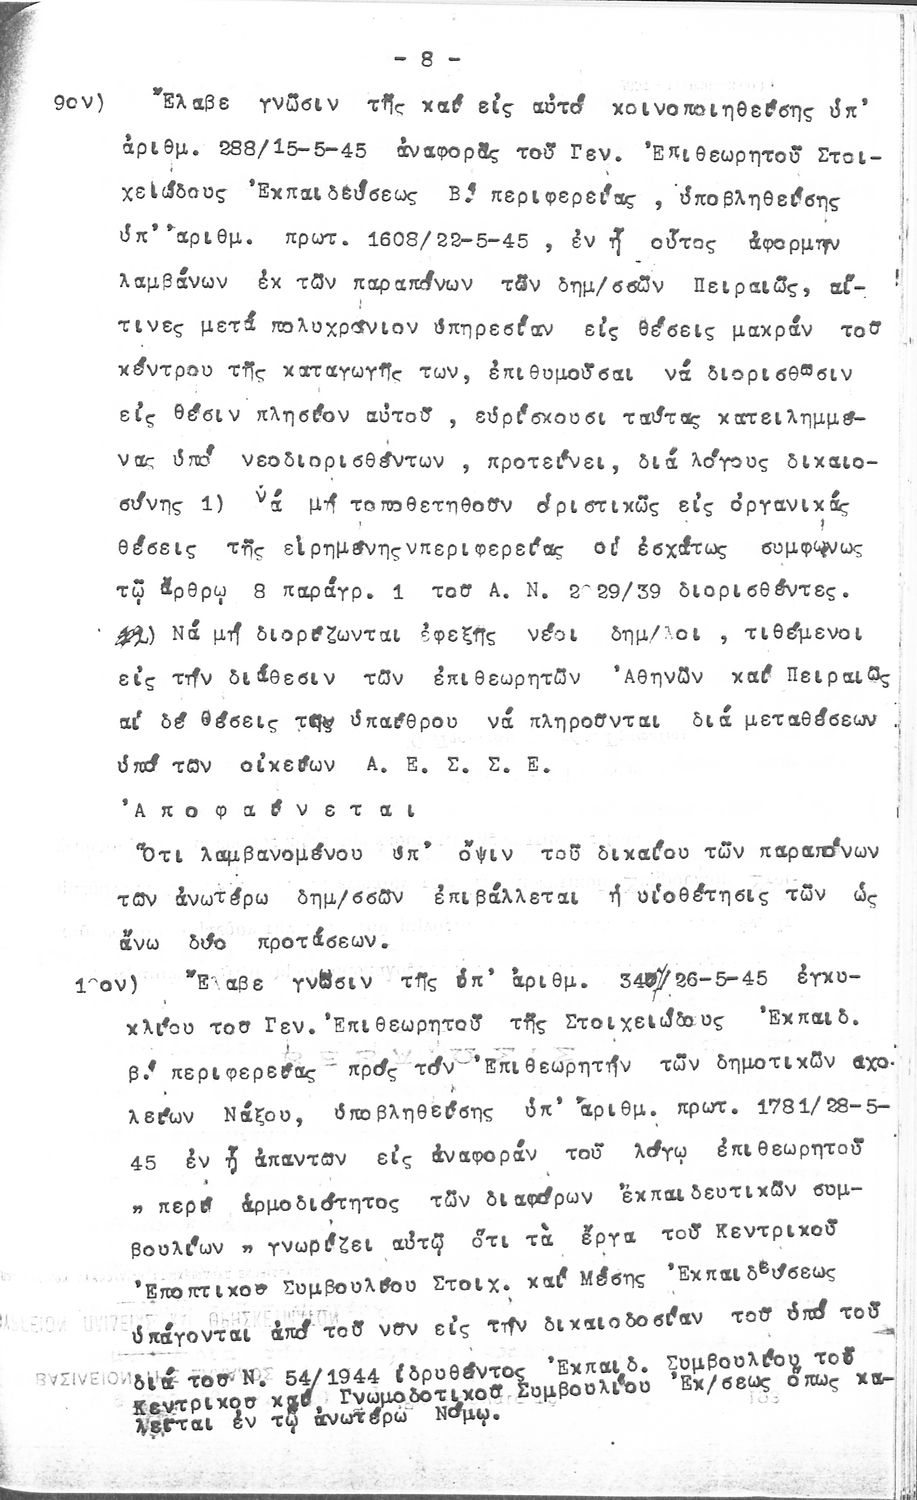 - 8 -
9ον) Ἔλαβε γνῶσιν τῆς καί εἰς αὐτό κοινοποιηθείσης ὑπ'
ἀριθμ. 288/15-5-45 ἀναφορᾶς τοῦ Γεν. Ἐπιθεωρητοῦ Στοι-
χειώδους Ἐκπαιδεύσεως Β.' περιφερείας , ὑποβληθείσης
ὑπ' ἀριθμ. πρωτ. 1608/22-5-45 , ἐν ᾗ οὗτος ἀφορμήν
λαμβάνων ἐκ τῶν παραπόνων τῶν δημ/σσῶν Πειραιῶς, αἵ-
τινες μετά πολυχρόνιον ὑπηρεσίαν εἰς θέσεις μακράν τοῦ
κέντρου τῆς καταγωγῆς των, ἐπιθυμοῦσαι νά διορισθῶσιν
εἰς θέσιν πλησίον αὐτοῦ , εὑρίσκουσι ταύτας κατειλημμέ-
νας ὑπό νεοδιορισθέντων , προτείνει, διά λόγους δικαιο-
σύνης 1) Νά μή τοποθετηθοῦν ὁριστικῶς εἰς ὀργανικάς
θέσεις τῆς εἰρημένης περιφερείας οἱ ἐσχάτως συμφώνως
τῷ ἄρθρῳ 8 παράγρ. 1 τοῦ Α. Ν. 2 29/39 διορισθέντες.
2) Νά μή διορίζωνται ἐφεξῆς νέοι δημ/λοι , τιθέμενοι
εἰς τήν διάθεσιν τῶν ἐπιθεωρητῶν Ἀθηνῶν καί Πειραιῶς
αἱ δέ θέσεις της ὑπαίθρου νά πληροῦνται διά μεταθέσεων
ὑπό τῶν οἰκείων Α. Ε. Σ. Σ. Ε.
Ἀ π ο φ α ί ν ε τ α ι
Ὅτι λαμβανομένου ὑπ' ὄψιν τοῦ δικαίου τῶν παραπόνων
τῶν ἀνωτέρω δημ/σσῶν ἐπιβάλλεται ἡ υἱοθέτησις τῶν ὡς
ἄνω δύο προτάσεων.
1 ον) Ἔλαβε γνῶσιν τῆς ὑπ' ἀριθμ. /26-5-45 ἐγκυ-
κλίου τοῦ Γεν. Ἐπιθεωρητοῦ τῆς Στοιχειώδους Ἐκπαιδ.
β.' περιφερείας πρός τόν Ἐπιθεωρητήν τῶν δημοτικῶν σχο-
λείων Νάξου, ὑποβληθείσης ὑπ' ἀριθμ. πρωτ. 1781/28-5-
45 ἐν ᾗ ἀπαντῶν εἰς ἀναφοράν τοῦ λόγῳ ἐπιθεωρητοῦ
„ περί ἁρμοδιότητος τῶν διαφόρων ἐκπαιδευτικῶν συμ-
βουλίων „ γνωρίζει αὐτῷ ὅτι τὰ ἔργα τοῦ Κεντρικοῦ
Ἐποπτικοῦ Συμβουλίου Στοιχ. καί Μέσης Ἐκπαιδεύσεως
ὑπάγονται ἀπό τοῦ νῦν εἰς τήν δικαιοδοσίαν τοῦ ὑπό τοῦ
διά τοῦ Ν. 54/1944 ἱδρυθέντος Ἐκπαιδ. Συμβουλίου τοῦ
Κεντρικοῦ καί Γνωμοδοτικοῦ Συμβουλίου Ἐκ/σεως ὅπως κα-
λεῖται ἐν τῷ ἀνωτέρω Νόμῳ.